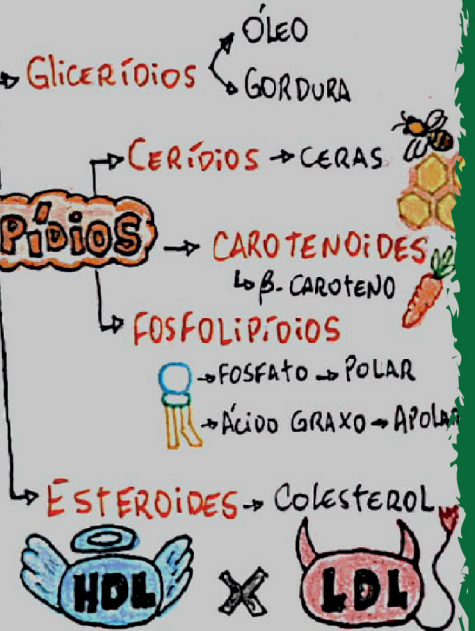 ÓLEO
GLICERÍDIOS
GORDURA
CERÍDIOS → CERAS
PÍDIOS → CAROTENOIDES
↳ β-CAROTENO
FOSFOLIPÍDIOS
→ FOSFATO → POLAR
→ ÁCIDO GRAXO → APOLAR
ESTEROIDES → COLESTEROL
HDL X LDL